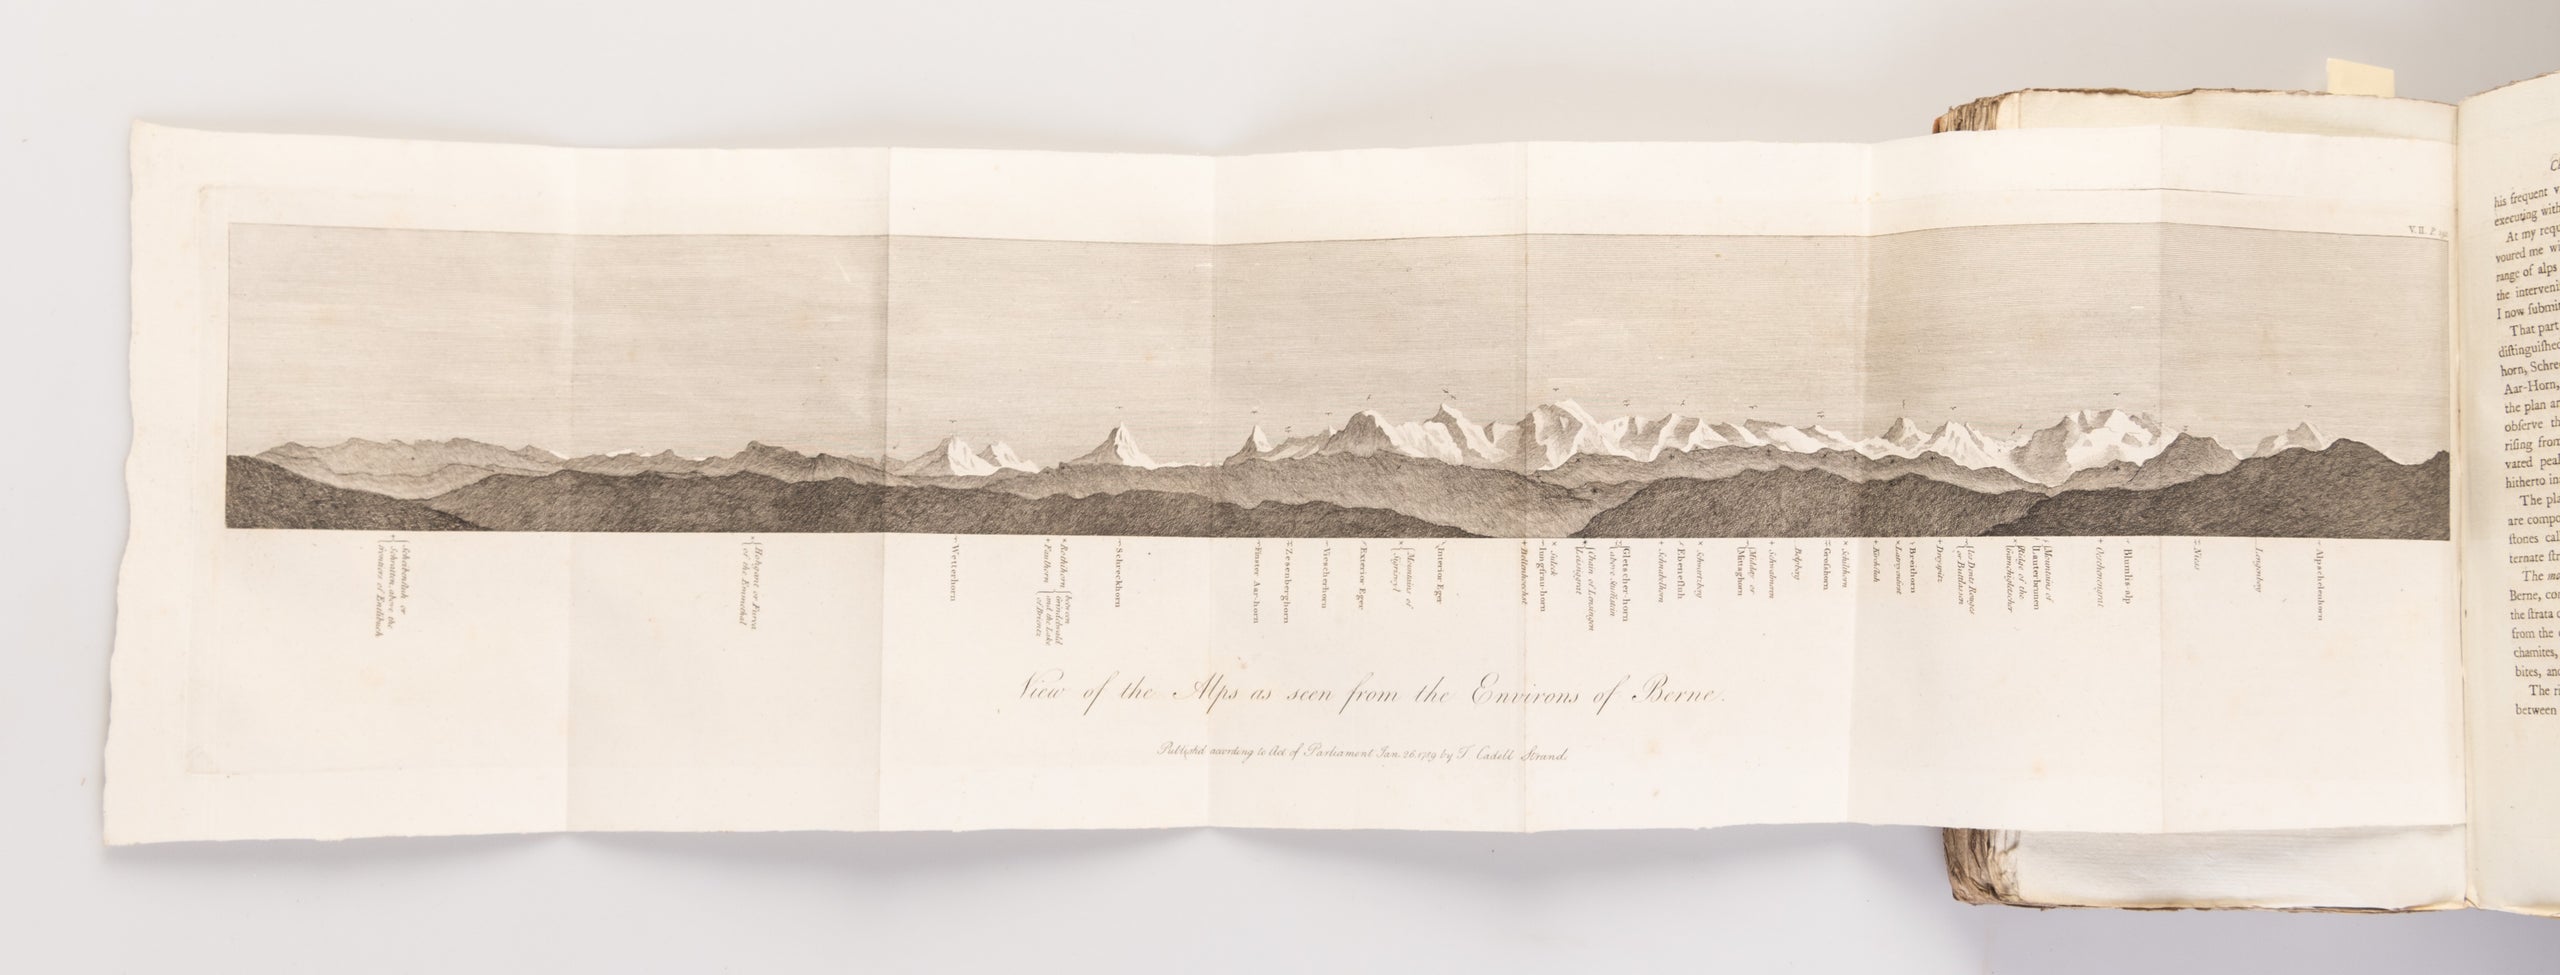 V. II. P.
Scheibenfluh or
Schratten, above the
frontiers of Entlibuch
Hohgant or Furca
of the Emmethal
Wetterhorn
Rothihorn
Faulhorn
between
Grindelwald
and the Lake
of Brientz
Schreckhorn
Finster Aar-horn
Zesenberghorn
Viescherhorn
Exterior Eger
Mountains of
Sigriswyl
Interior Eger
Buttenhoechst
Iungfrau-horn
Suleck
Chain of Lensingen
Leissiggrat
Gletscher-horn
above Stuffistein
Schnabelhorn
Ebenefluh
Schwartzbey
Midday or
Mittaghorn
Schwalmeren
Belpberg
Grofshorn
Schilthorn
Kirchfluh
Latreyenfirst
Breithorn
Dreyspitz
La Dent Rouges
or Buttlassen
Ridge of the
Mountains of
Lauterbrunen
Oerthenengrat
Blumlis alp
Niess
Langenberg
Alpschelenhorn
View of the Alps as seen from the Environs of Berne.
Publish'd according to Act of Parliament Jan. 26. 1789 by T. Cadell Strand.
his frequent
executing with
At my requ
voured me wi
range of alps
the interveni
I now ſubmit
That part
diſtinguiſhed
horn, Schre
Aar-Horn,
the plan ar
obſerve th
riſing from
vated peak
hitherto in
The pla
are compo
ſtones cal
ternate ſtr
The
Berne, co
the ſtrata o
from the
chamites,
bites, and
The ri
between